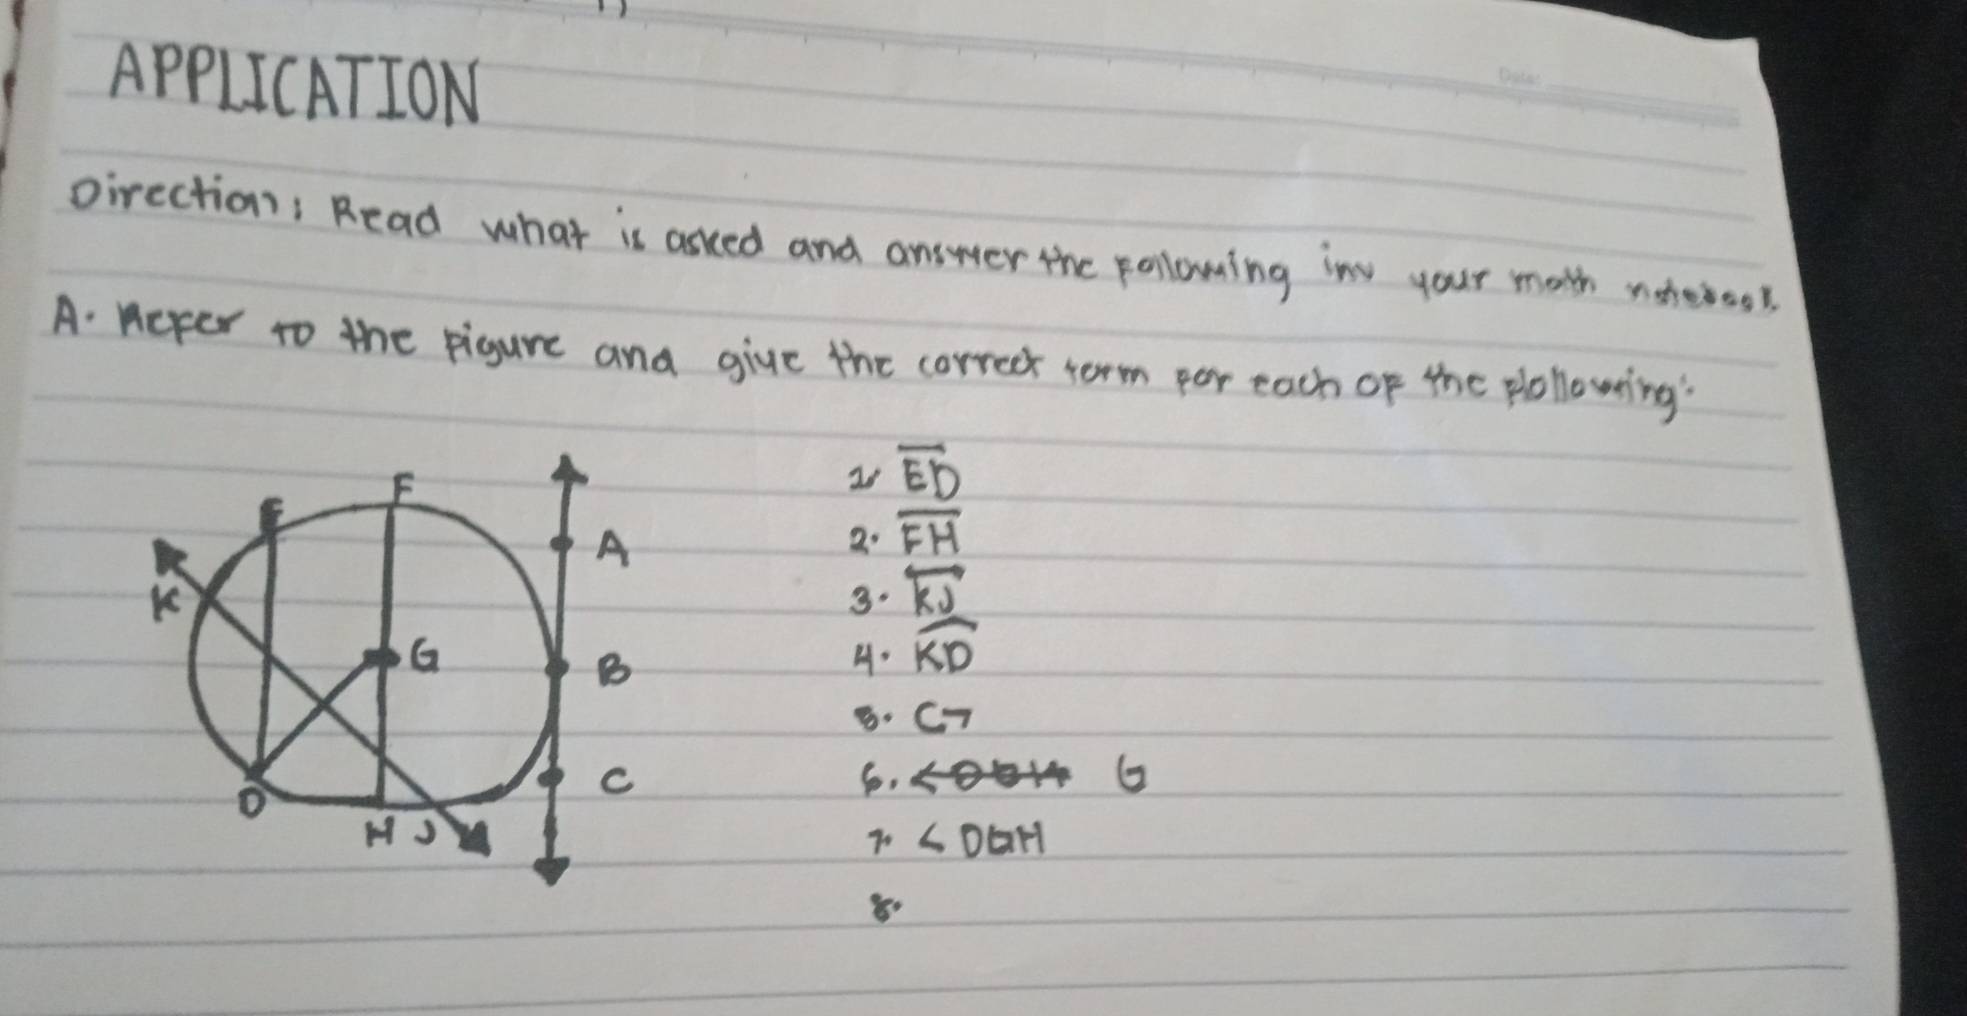 APPLICATION
Direction: Read what is asked and answer the following inv your math notebook.
A. Refer to the figure and give the correct term for each of the following:
E
F
A
K
G
B
C
D
H J
1. ED
2. FH
3. KJ
4. KD
5. C7
6. G
7. < DGH
8.